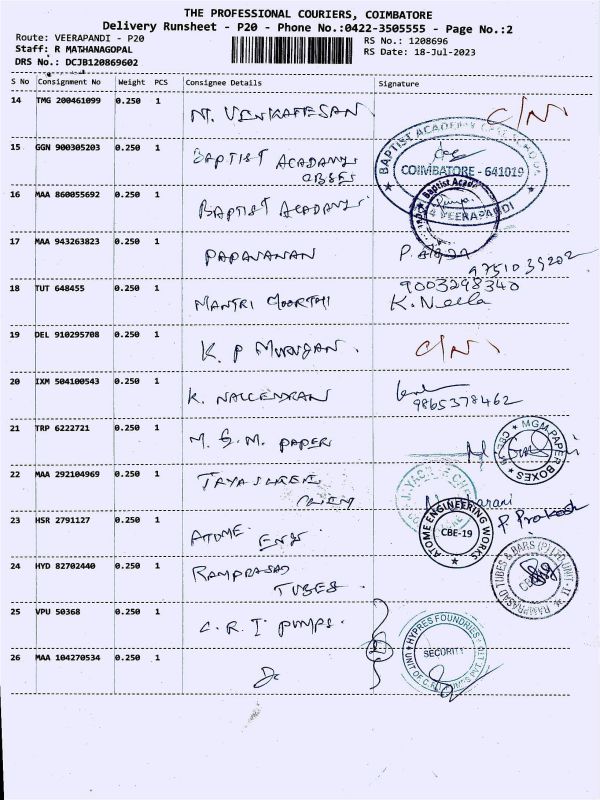 THE PROFESSIONAL COURIERS, COIMBATORE
Delivery Runsheet - P20 - Phone No.:0422-3505555 - Page No.:2
Route: VEERAPANDI - P20
Staff: R MATHANAGOPAL
DRS No.: DCJB120869602
RS No.: 1208696
RS Date: 18-Jul-2023
S No Consignment No Weight PCS Consignee Details Signature
14 TMG 200461099 0.250 1 C/N
15 GGN 900305203 0.250 1 BAPTIST ACADAMY
CBSE
COIMBATORE - 641019
16 MAA 860055692 0.250 1 BAPTIST ACADAMY
VEERAPANDI
17 MAA 943263823 0.250 1
9751039202
18 TUT 648455 0.250 1 MANTRI MOORTHI 9003298340
K. Neela
19 DEL 910295708 0.250 1 K. P MURUGAN. C/N
20 IXM 504100543 0.250 1
9865378462
21 TRP 6222721 0.250 1 M. G. M. PAPER
MGM PAPER BOXES
22 MAA 292104969 0.250 1
23 HSR 2791127 0.250 1 ATOME ENGG P. Prakash
ATOME ENGINEERING WORKS
CBE-19
24 HYD 82702440 0.250 1 RAMPRASAD
TUBES
RAMPRASAD TUBES & BARS (P) LTD. UNIT-II
25 VPU 50368 0.250 1 C. R. I PUMPS.
HYPRES FOUNDRIES
SECURITY
26 MAA 104270534 0.250 1